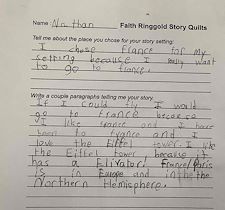 Name: Nathan Faith Ringgold Story Quilts
Tell me about the place you chose for your story setting:
I chose France for my
setting because I really want
to go to france.
Write a couple paragraphs telling me your story.
If I could fly I wold
go to france because
I like france and I have
been to france and I
love the Eiffel tower. I like
the Eiffel tower because it
has a Elivator! France/Paris
is in Europe and in the the
Northern Hemisphere.